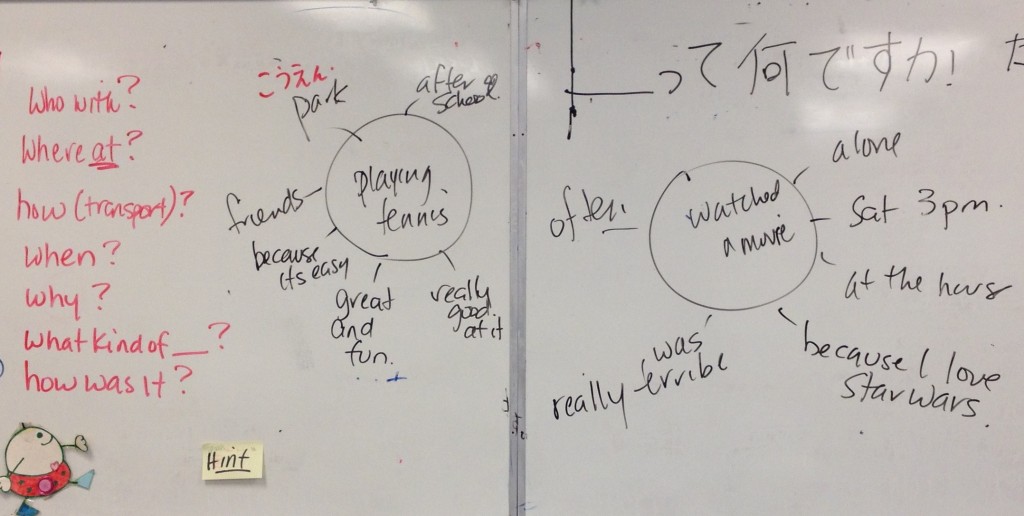 Who with?
Where at?
how (transport)?
When?
Why?
What kind of __?
how was it?
こうえん
park
after
school
playing
tennis
friends
because
its easy
great
and
fun.
really
good
at it
Hint
って何ですか!
alone
often.
watched
a movie
Sat 3pm.
at the
because I love
Star Wars
was
really terrible